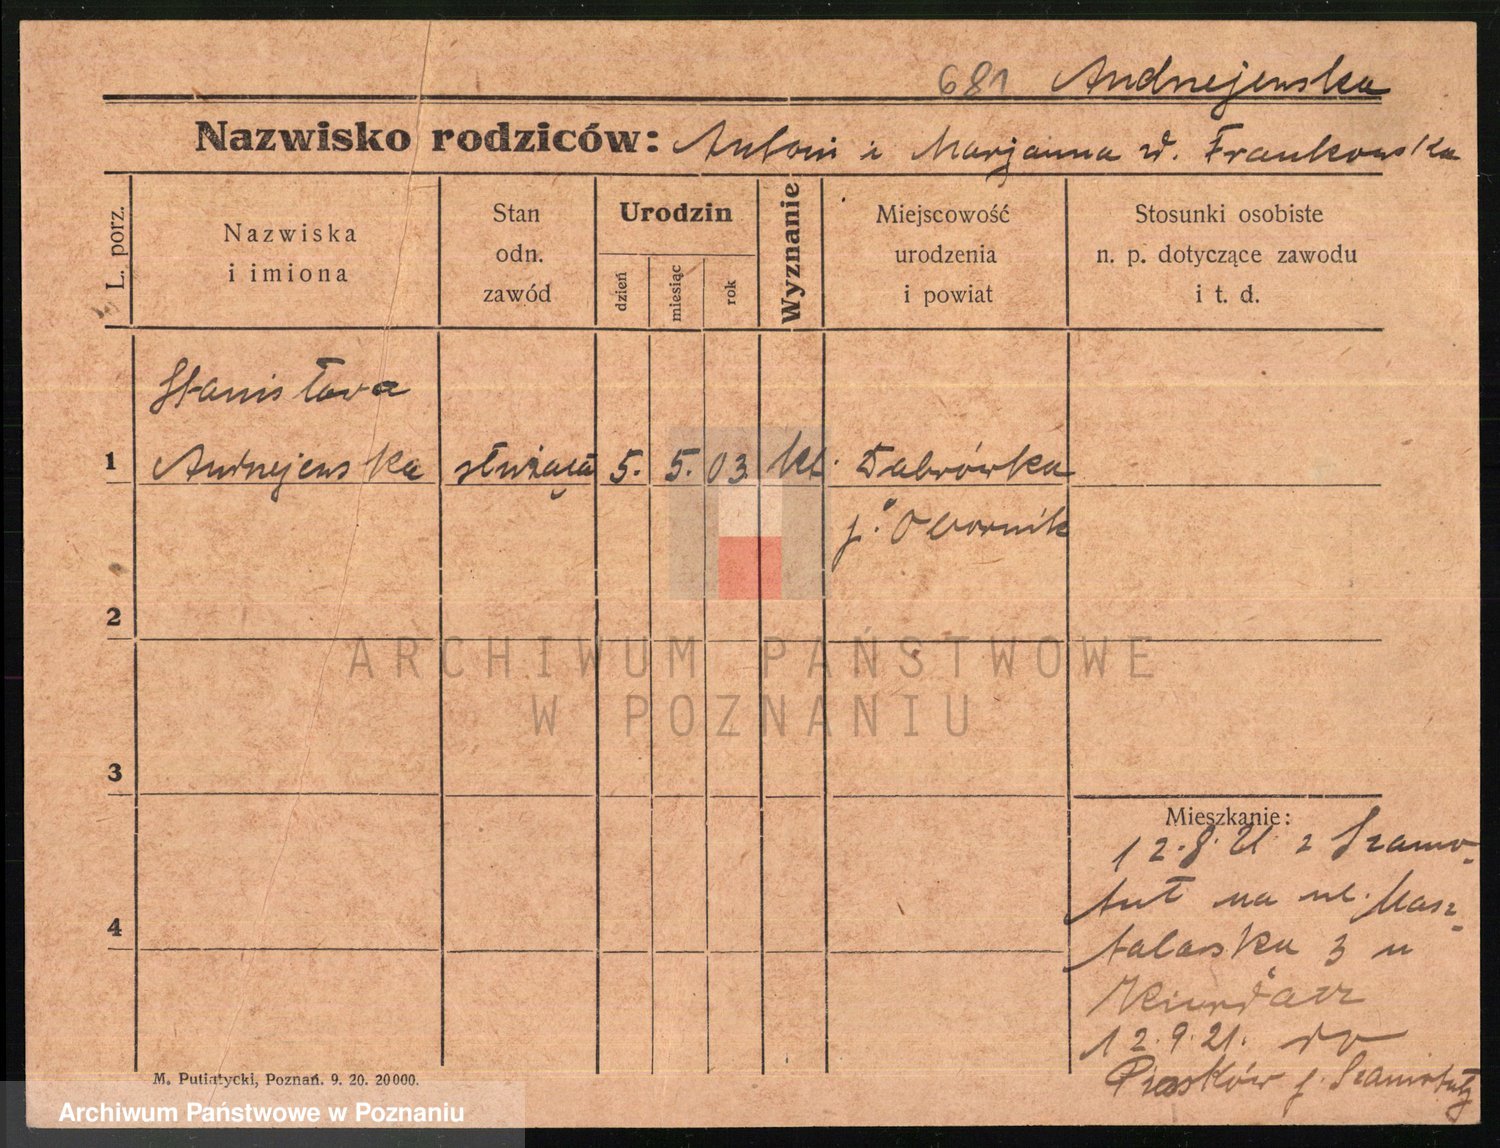 681 Andrzejewska
Nazwisko rodziców: Antoni i Marjanna zd. Frankowska
L. porz.
Nazwiska
i imiona
Stan
odn.
zawód
Urodzin
dzień
miesiąc
rok
Wyznanie
Miejscowość
urodzenia
i powiat
Stosunki osobiste
n. p. dotyczące zawodu
i t. d.
Stanisława
1 Andrzejewska służąca 5. 5. 03 kt. Dąbrówka
p. Obornik
2
3
4
Mieszkanie:
12.8.21 z Szamo-
tuł na ul. Masz-
talarska 3 u
12.9.21. do
Piasków p. Szamotuły
M. Putiatycki, Poznań. 9. 20. 20000.
ARCHIWUM PAŃSTWOWE
W POZNANIU
Archiwum Państwowe w Poznaniu